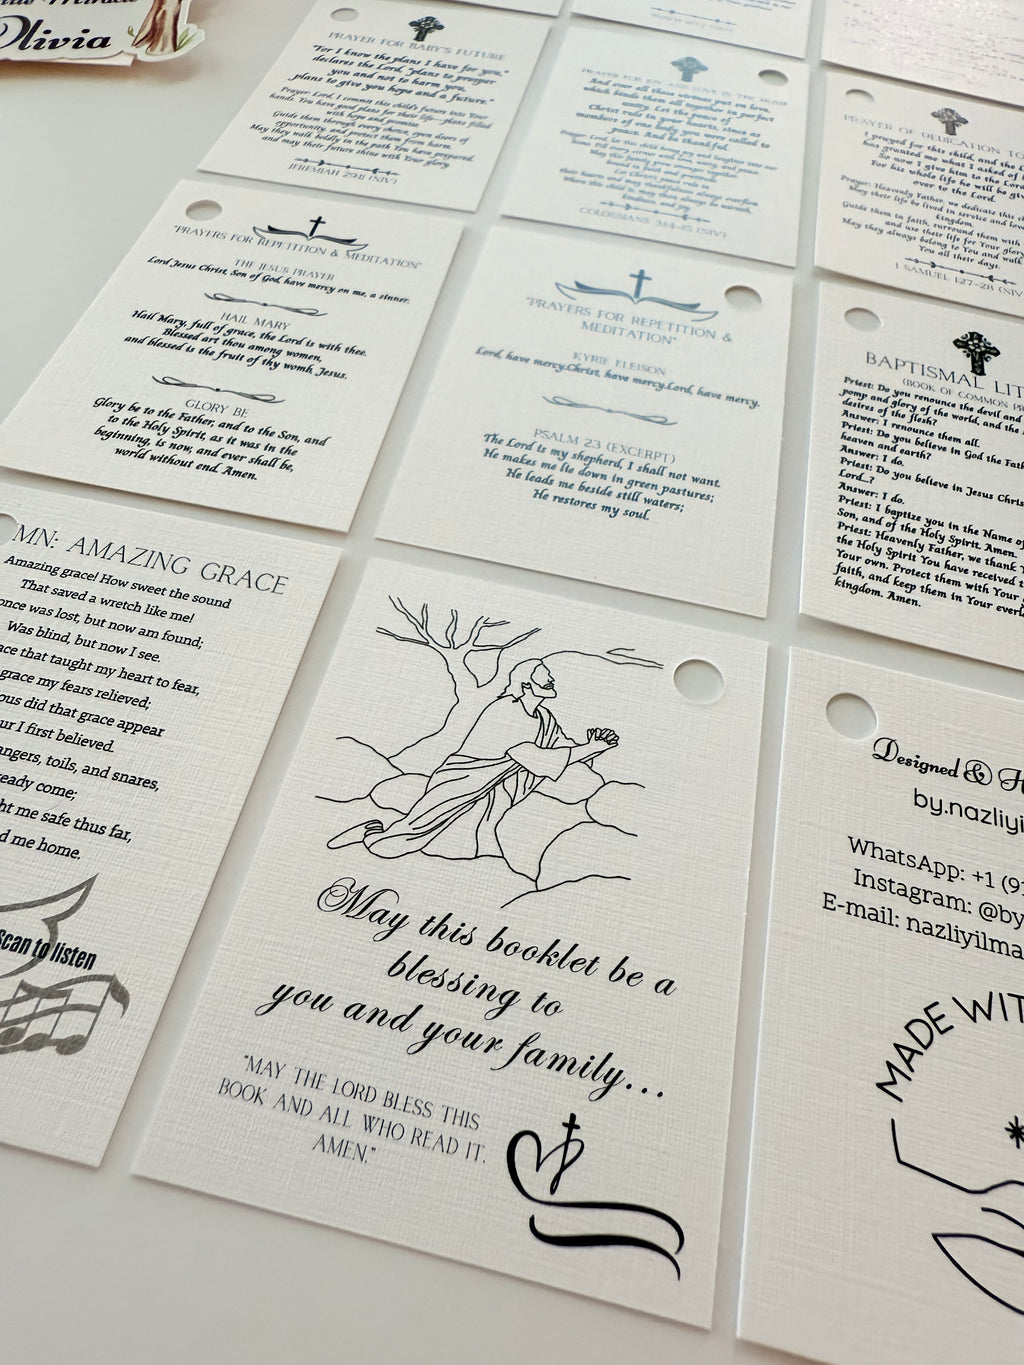 Olivia
PRAYER FOR BABY'S FUTURE
"For I know the plans I have for you,"
declares the Lord, "plans to prosper
you and not to harm you,
plans to give you hope and a future."
Prayer: Lord, I commit this child's future into Your
hands. You have good plans for their life—plans filled
with hope and promise.
Guide them through every choice, open doors of
opportunity, and protect them from harm.
May they walk boldly in the path You have prepared,
and may their future shine with Your glory.
JEREMIAH 29:11 (NIV)
PRAYER FOR JOY AND LOVE IN THE HOME
And over all these virtues put on love,
which binds them all together in perfect
unity. Let the peace of
Christ rule in your hearts, since as
members of one body you were called to
peace. And be thankful.
COLOSSIANS 3:14-15 (NIV)
PRAYER OF DEDICATION TO
I prayed for this child, and the L
has granted me what I asked of
So now I give him to the Lord
For his whole life he will be giv
over to the Lord.
Prayer: Heavenly Father, we dedicate this c
May their life be lived in service and love
kingdom.
Guide them in faith, surround them with
and use their life for Your glory
May they always belong to You and walk
You all their days.
1 SAMUEL 1:27-28 (NIV
"PRAYERS FOR REPETITION & MEDITATION"
THE JESUS PRAYER
Lord Jesus Christ, Son of God, have mercy on me, a sinner.
HAIL MARY
Hail Mary, full of grace, the Lord is with thee.
Blessed art thou among women,
and blessed is the fruit of thy womb, Jesus.
GLORY BE
Glory be to the Father, and to the Son, and
to the Holy Spirit, as it was in the
beginning, is now, and ever shall be,
world without end. Amen.
"PRAYERS FOR REPETITION &
MEDITATION"
KYRIE ELEISON
Lord, have mercy.Christ, have mercy.Lord, have mercy.
PSALM 23 (EXCERPT)
The Lord is my shepherd, I shall not want.
He makes me lie down in green pastures;
He leads me beside still waters;
He restores my soul.
BAPTISMAL LIT
(BOOK OF COMMON PR
Priest: Do you renounce the devil and
pomp and glory of the world, and the
desires of the flesh?
Answer: I renounce them all.
Priest: Do you believe in God the Fath
heaven and earth?
Answer: I do.
Priest: Do you believe in Jesus Chris
Lord...?
Answer: I do.
Priest: I baptize you in the Name of
Son, and of the Holy Spirit. Amen.
Priest: Heavenly Father, we thank Y
the Holy Spirit You have received t
Your own. Protect them with Your
faith, and keep them in Your everl
kingdom. Amen.
MN: AMAZING GRACE
Amazing grace! How sweet the sound
That saved a wretch like me!
once was lost, but now am found;
Was blind, but now I see.
ace that taught my heart to fear,
grace my fears relieved;
ous did that grace appear
ur I first believed.
angers, toils, and snares,
ready come;
ht me safe thus far,
d me home.
Scan to listen
May this booklet be a
blessing to
you and your family...
"MAY THE LORD BLESS THIS
BOOK AND ALL WHO READ IT.
AMEN."
Designed & H
by.nazliyi
WhatsApp: +1 (91
Instagram: @by
E-mail: nazliyilma
MADE WIT